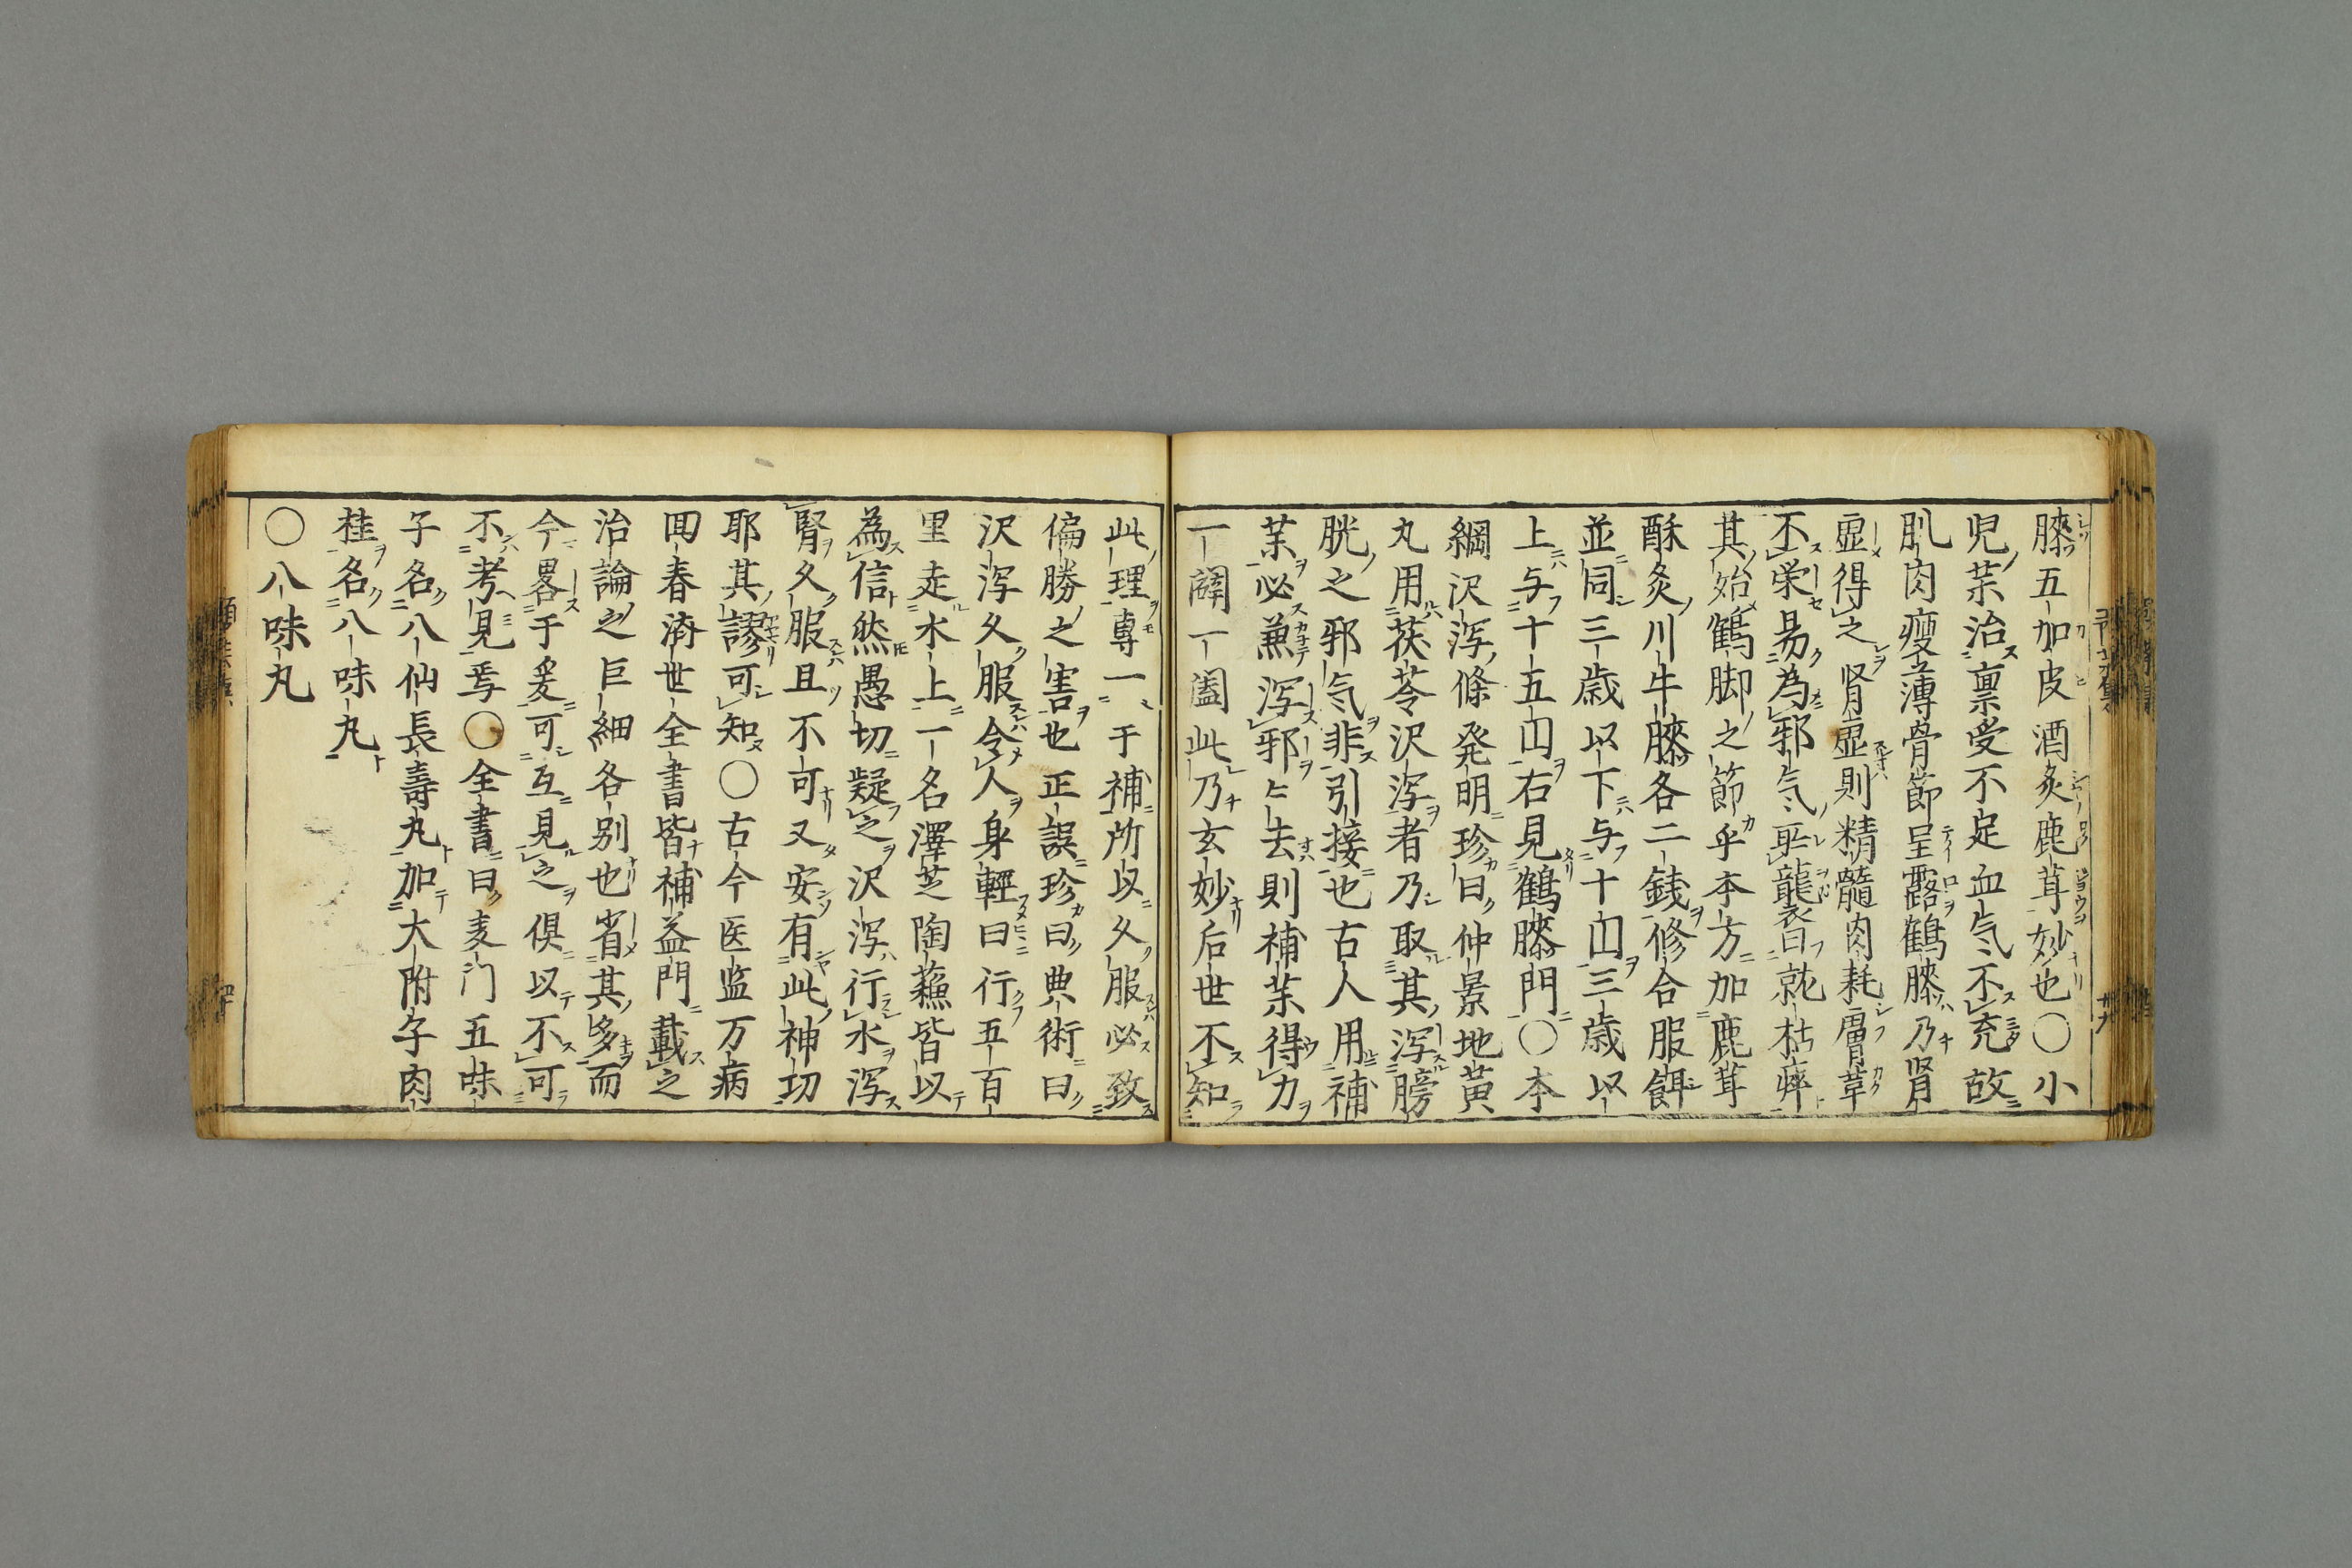 膝五加皮酒炙鹿茸妙也〇小
児茱治稟受不足血气不充故
肌肉瘦薄骨節呈露鶴膝乃肾
虚得之肾虚則精髓内耗膚革
不栄易為邪气所襲日就枯瘁
其殆鶴脚之節乎本方加鹿茸
酥炙川牛膝各二銭修合服餌
並同三歳以下与十四三歳以
上与十五四右見鶴膝門〇本
綱沢泻條発明珍曰仲景地黄
丸用茯苓沢泻者乃取其泻膀
胱之邪气非引接也古人用補
茱必兼泻邪〻去則補茱得力
一闢一闔此乃玄妙后世不知
此理專一于補所以久服必致
偏勝之害也正誤珍曰典術曰
沢泻久服令人身輕日行五百
里走水上一名澤芝陶蘓皆以
為信然愚切疑之沢泻行水泻
腎久服且不可又安有此神切
耶其謬可知〇古今医监万病
囬春済世全書皆補益門載之
治論之巨細各别也省其多而
今畧于爰可互見之倶以不可
不考見焉〇全書曰麦门五味
子名八仙長壽丸加大附子肉
桂名八味丸
〇八味丸